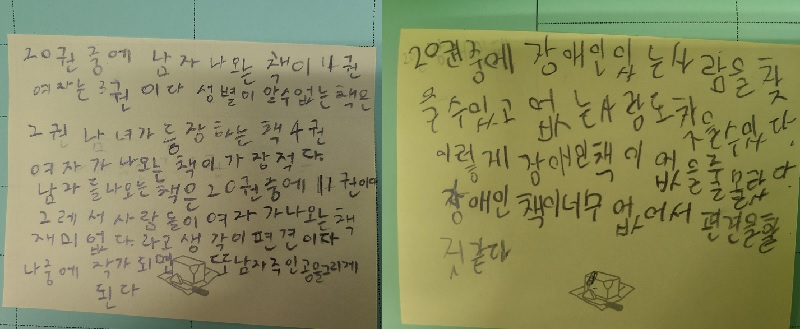 20권 중에 남자 나오는 책이 11권
여자는 3권 이다 성별이 알수없는 책은
2권 남녀가 등장하는 책 4권
여자가 나오는 책이 가장적다
남자들나오는 책은 20권중에 11권이다
그레서 사람들이 여자가나오는 책
재미없다.라고 생각이 편견이다
나중에 작가되면 또또남자주인공을그리게
된다
20권중에 장애인있는사람을 찾
을수있고 없는사람도차
즈을수있다.
이렇게 장애인책이 없을줄몰랐다.
장애인 책이너무 없어서 편견을할
것같다